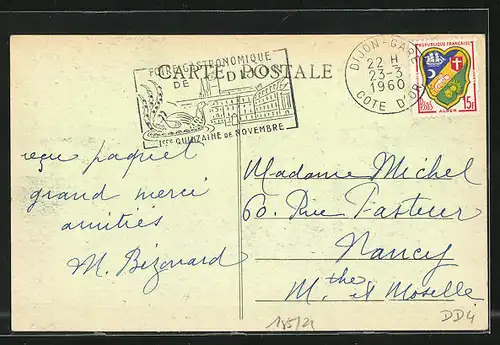 FOIRE GASTRONOMIQUE
DE DIJON
1ERE QUINZAINE DE NOVEMBRE
CARTE POSTALE
DIJON-GARE
22 H
23-3
1960
COTE D'OR
REPUBLIQUE FRANÇAISE
POSTES
15F
ALGER
reçu paquet
grand merci
amitiés
M. Bizouard
Madame Michel
60. Rue Pasteur
Nancy
M. the et Moselle
185/21
DD4